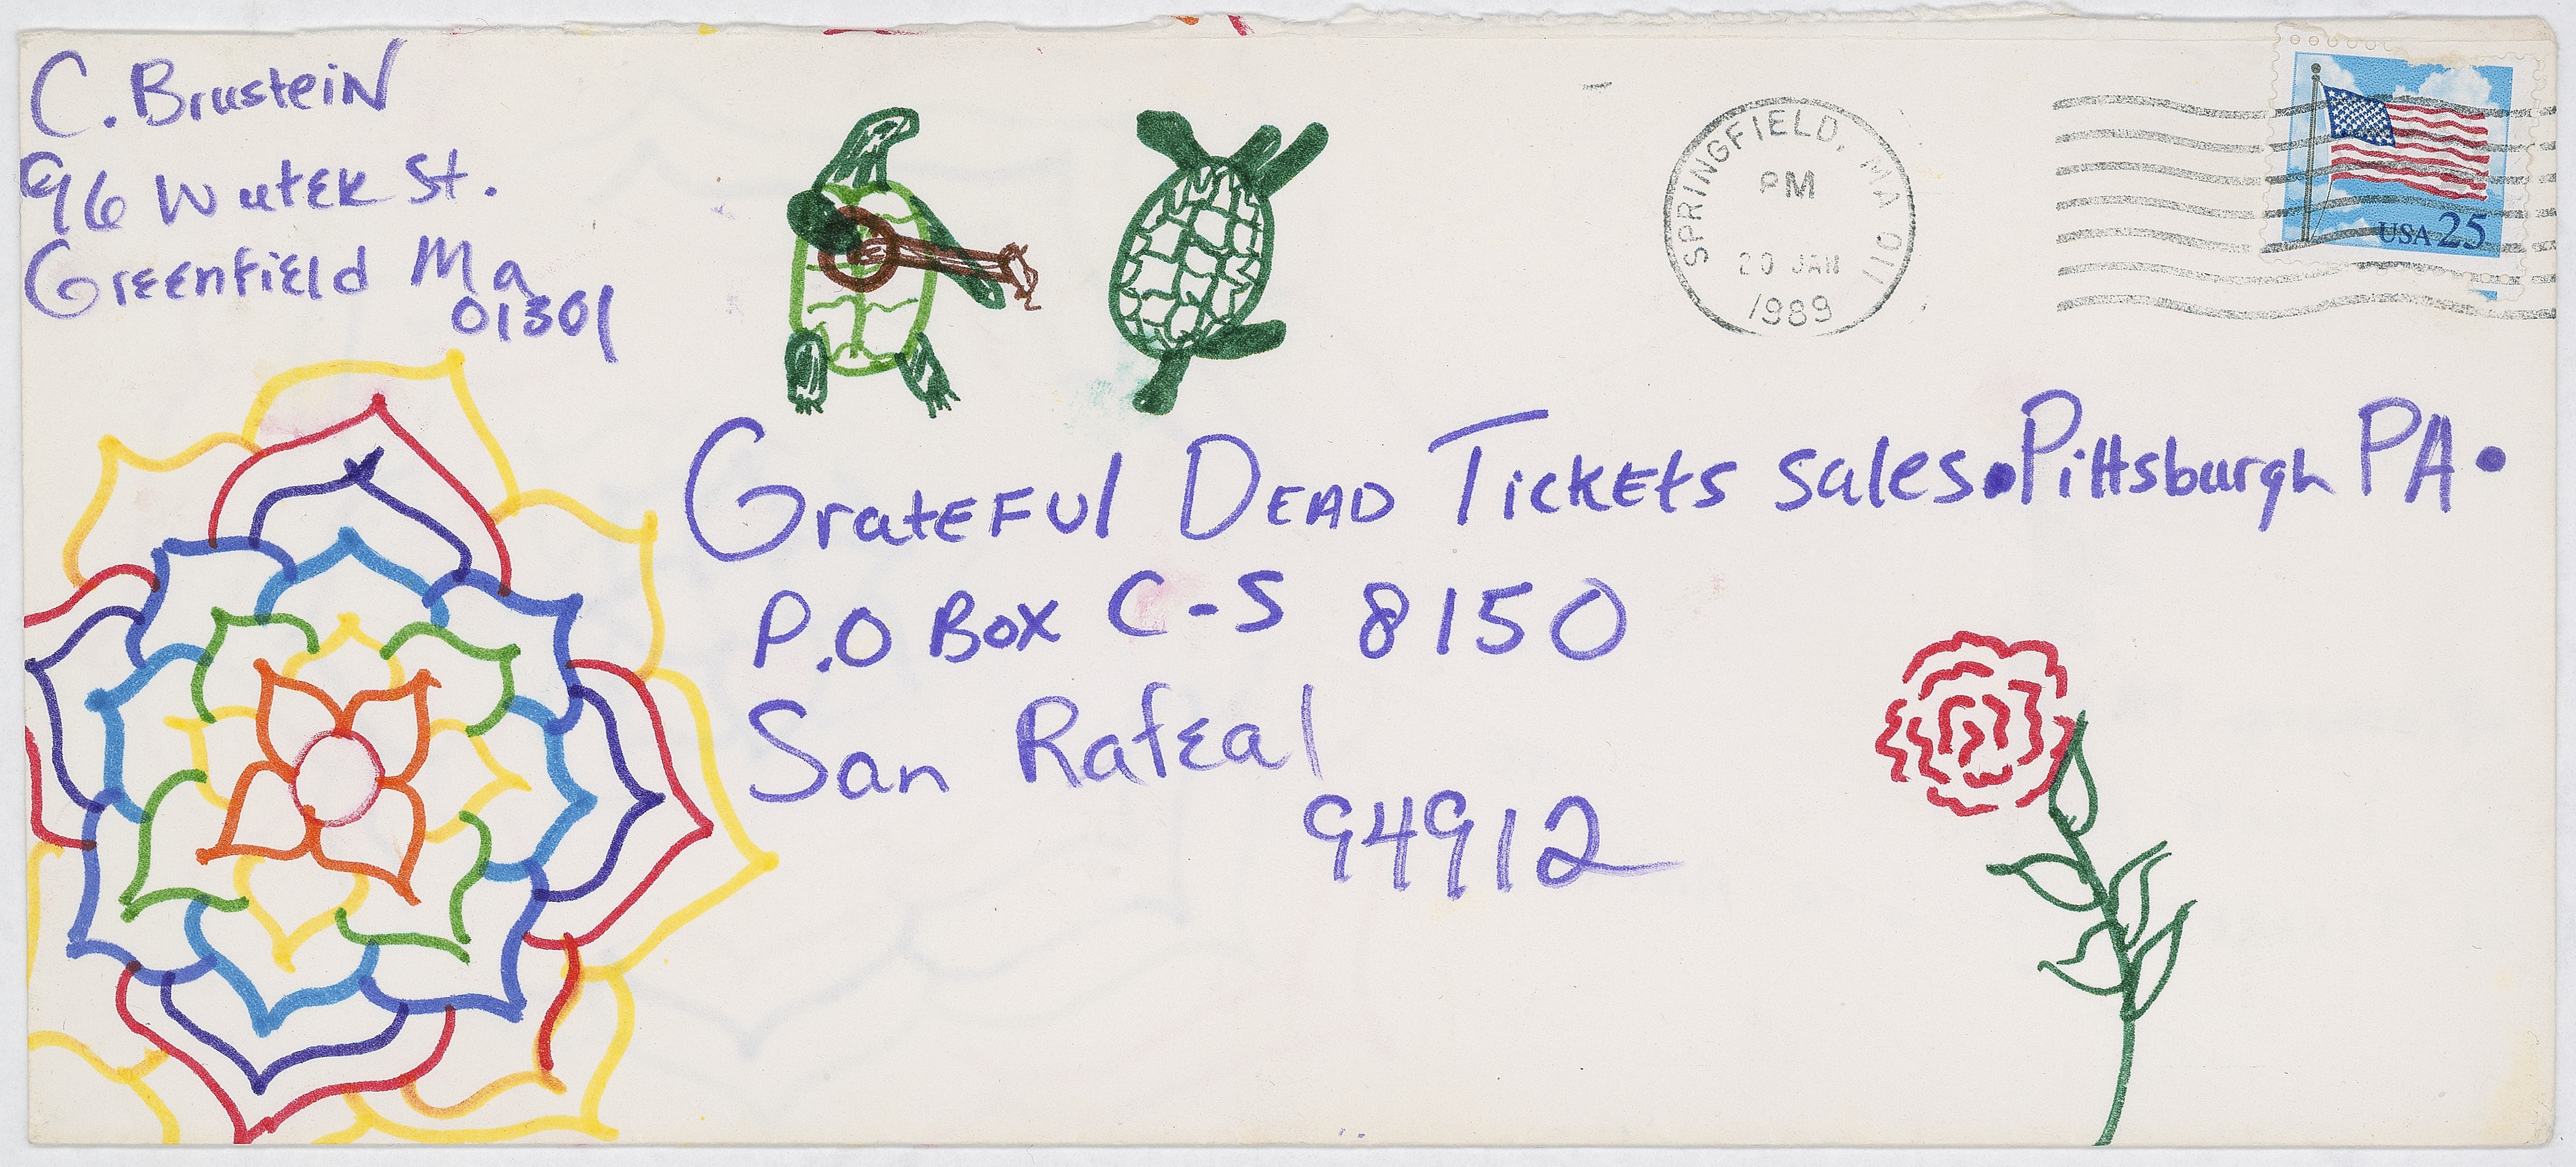 C. Brustein
96 Water St.
Greenfield Ma
01301
SPRINGFIELD, MA 011
PM
20 JAN
1989
USA 25
Grateful Dead Tickets sales • Pittsburgh PA •
P.O Box C-S 8150
San Rafeal
94912